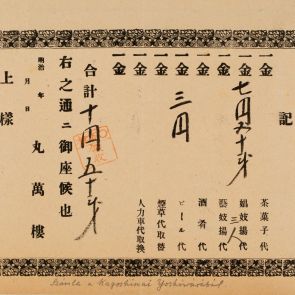 記
一金 茶菓子代
一金 七円五十銭 娼妓揚代 三人
一金 藝妓揚代
一金 酒肴代
一金 三円 ビール代
一金 煙草代取替
一金 人力車代取換
合計 十円五十銭
右之通ニ御座候也
明治 年 月 日
丸萬樓
上様
Számla a Kagoshimai Yoshiwarából.